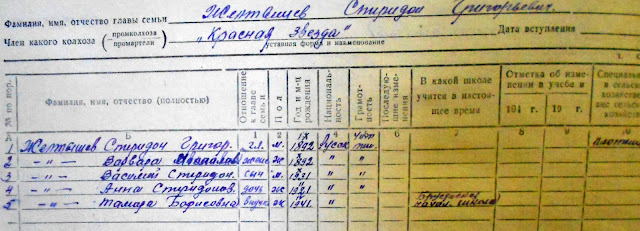 Фамилия, имя, отчество главы семьи Желтышев Спиридон Григорьевич.
Член какого колхоза промколхоза промартели „Красная Звезда" Дата вступления
уставная форма и наименование
№ по пор. Фамилия, имя, отчество (полностью) Отношение к главе семьи Пол Год и м-ц рождения Национальность Грамотность Последующие изменения В какой школе учится в настоящее время Отметка об изменении в учебе и 194 г. 19 г. Специальн
А Б 1 2 3 4 5 6 7 8 9 10
1 Желтышев Спиридон Григор. гл. м. IX 1892 Русск плотник
2 —„— Варвара жена ж 1892 " "
3 —„— Василий Спиридон. сын м. 1931 " "
4 —„— Анна Спиридонов. дочь ж 1921 " "
5 —„— Тамара Борисовна внучка ж 1941. " " начал. школа